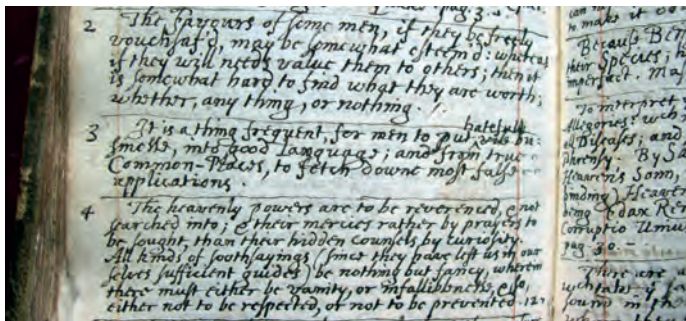 pag. 3.
2 The favours of some men, if they be freely
vouchsaf'd, may be somewhat esteem'd: whereas
if they will needs value them to others; then it
is somewhat hard to find what they are worth;
whether, any thing, or nothing.
hatefull
3 It is a thing frequent, for men to put
smesse, into good language; and from true
Common-Places, to fetch downe most false
applications.
4 The heavenly powers are to be reverenced, & not
searched into; & their mercies rather by prayers to
be sought, than their hidden counsels by curiosity.
All kinds of soothsayings (since they have left us in our
selves sufficient guides) be nothing but fancy, wherein
there must either be vanity, or infalliblenesse, & so,
either not to be respected, or not to be prevented.
to make it
Because
their Species;
imperfect.
To interpret
Allegories:
all Diseases; and
phrensy. By
Heaven's Sonn,
binding) Heaven
being Edax
Corruptio
pag 30
There are
sound in